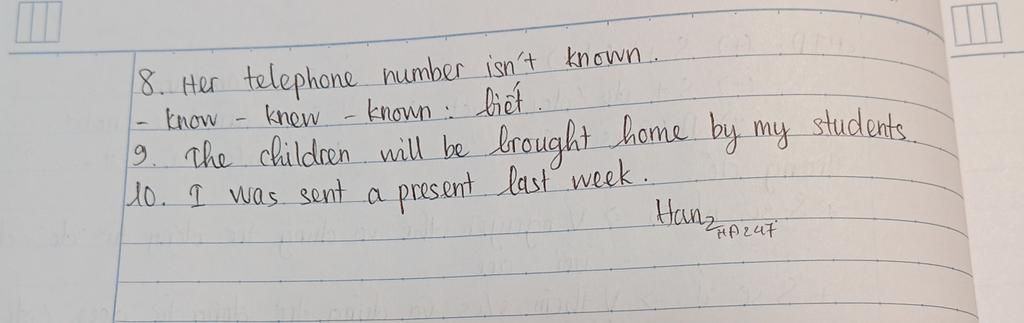 8. Her telephone number isn't known.
- know - knew - known : biết.
9. The children will be brought home by my students.
10. I was sent a present last week.
Hanz
HA247